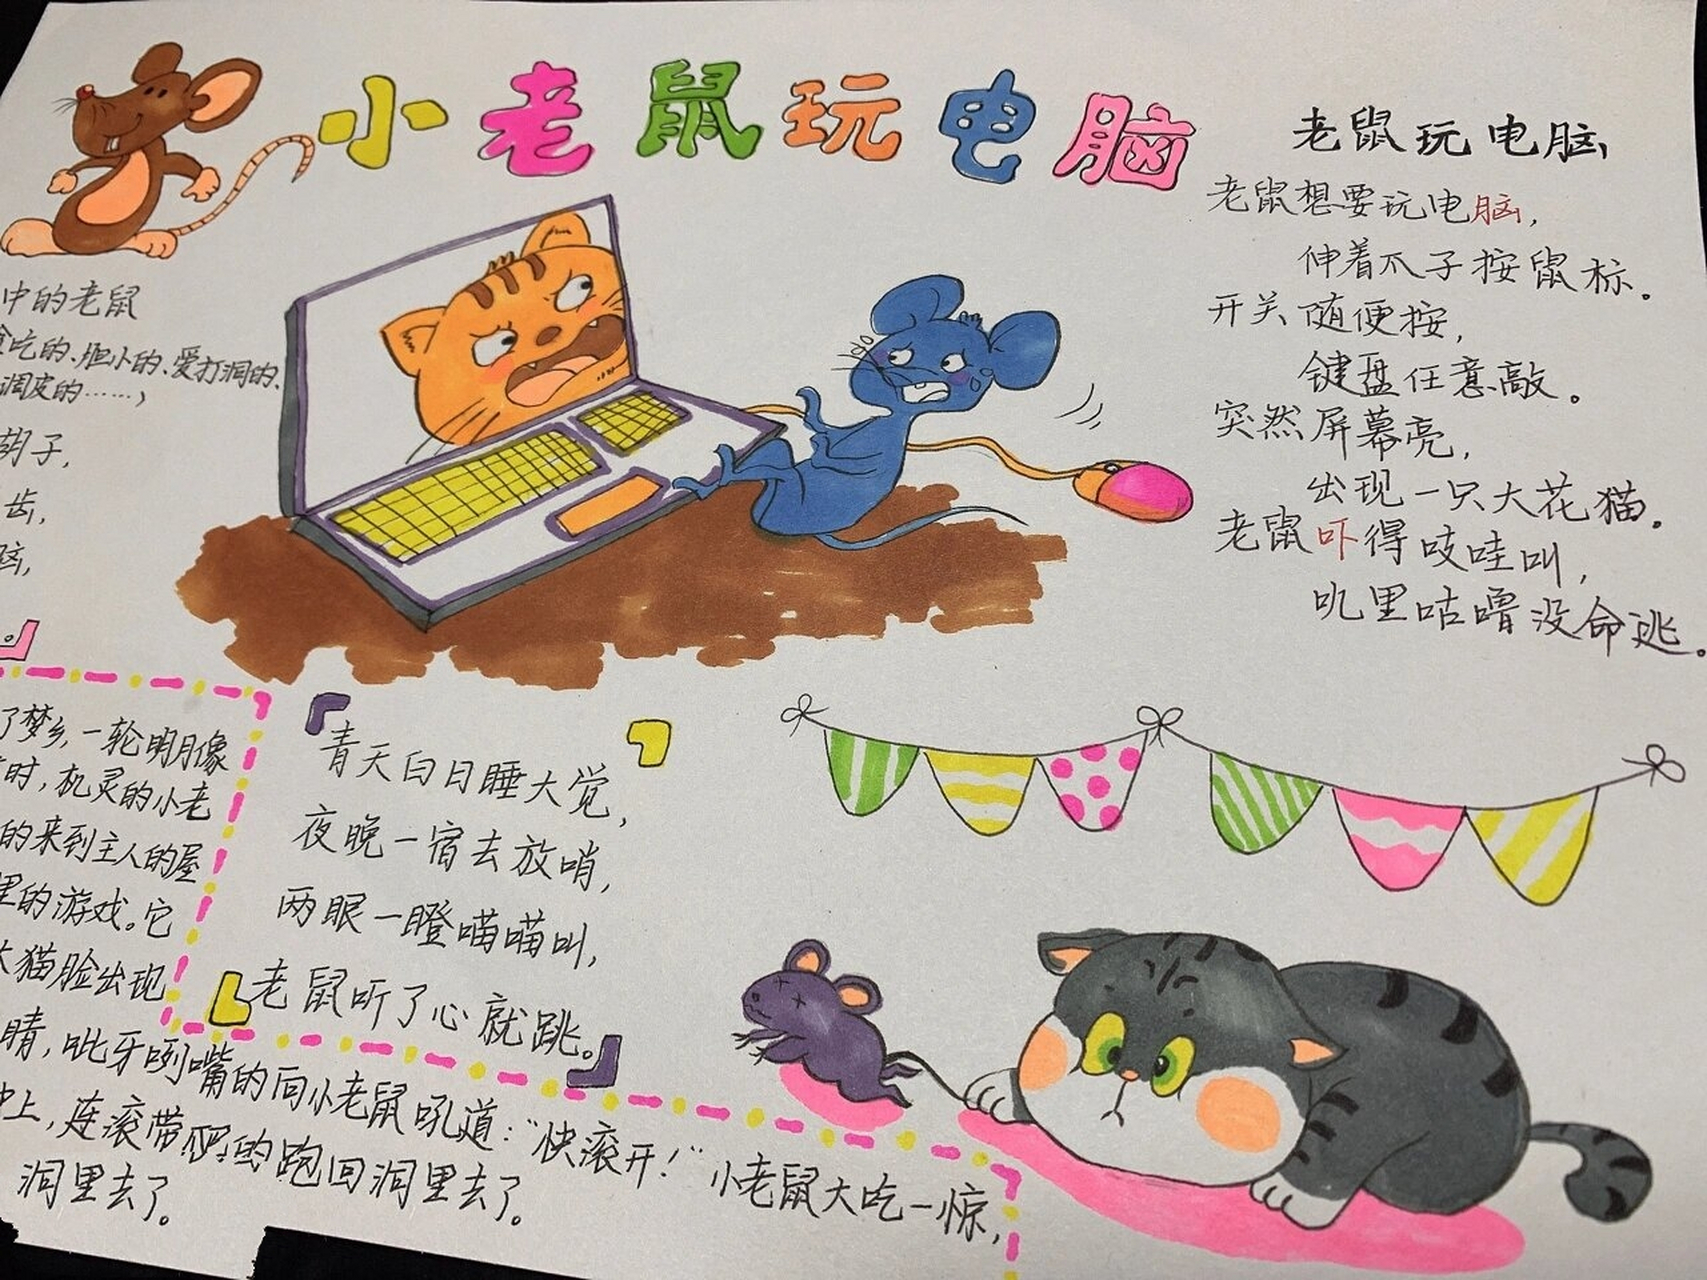 小老鼠玩电脑
老鼠玩电脑
老鼠想要玩电脑,
伸着爪子按鼠标。
开关随便按,
键盘任意敲。
突然屏幕亮,
出现一只大花猫。
老鼠吓得吱哇叫,
叽里咕噜没命逃。
中的老鼠
吃的、胆小的、爱打洞的、
调皮的……,
胡子,
齿,
了梦乡,一轮明月像
时,机灵的小老
的来到主人的屋
里的游戏。它
大猫脸出现
睛,呲牙咧嘴的向小老鼠吼道:“快滚开!”小老鼠大吃一惊,
上,连滚带爬的跑回洞里去了。
洞里去了。
青天白日睡大觉,
夜晚一宿去放哨,
两眼一瞪喵喵叫,
老鼠听了心就跳。